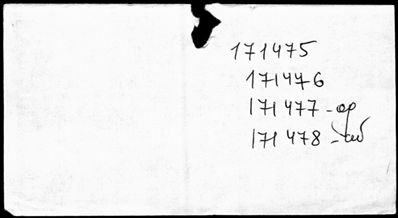 171475
171476
171477
171478